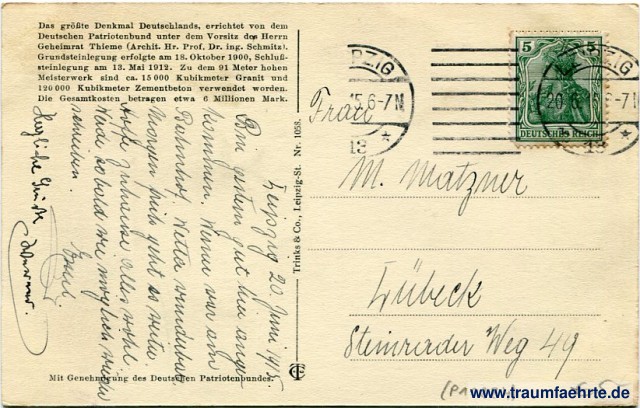 Das größte Denkmal Deutschlands, errichtet von dem
Deutschen Patriotenbund unter dem Vorsitz des Herrn
Geheimrat Thieme (Archit. Hr. Prof. Dr. ing. Schmitz).
Grundsteinlegung erfolgte am 18. Oktober 1900, Schluß-
steinlegung am 13. Mai 1912. Zu dem 91 Meter hohen
Meisterwerk sind ca. 15 000 Kubikmeter Granit und
120 000 Kubikmeter Zementbeton verwendet worden.
Die Gesamtkosten betragen etwa 6 Millionen Mark.
Leipzig 20 Juni 1915.
Bin gestern gut hier ange-
kommen, Hanne war am
Bahnhof. Wetter wunderbar.
Morgen früh geht es weiter.
Hoffe zuhause alles wohl
sobald wie möglich wieder
Emil.
Herzliche Grüße
Mit Genehmigung des Deutschen Patriotenbundes.
Trinks & Co., Leipzig-St. Nr. 1058.
LEIPZIG
15.6-7N
13
*
5 5
DEUTSCHES REICH
LEIPZIG
20.6
6-7N
13
*
Frau
M. Matzner
Lübeck
Steinrader Weg 49
www.traumfaehrte.de